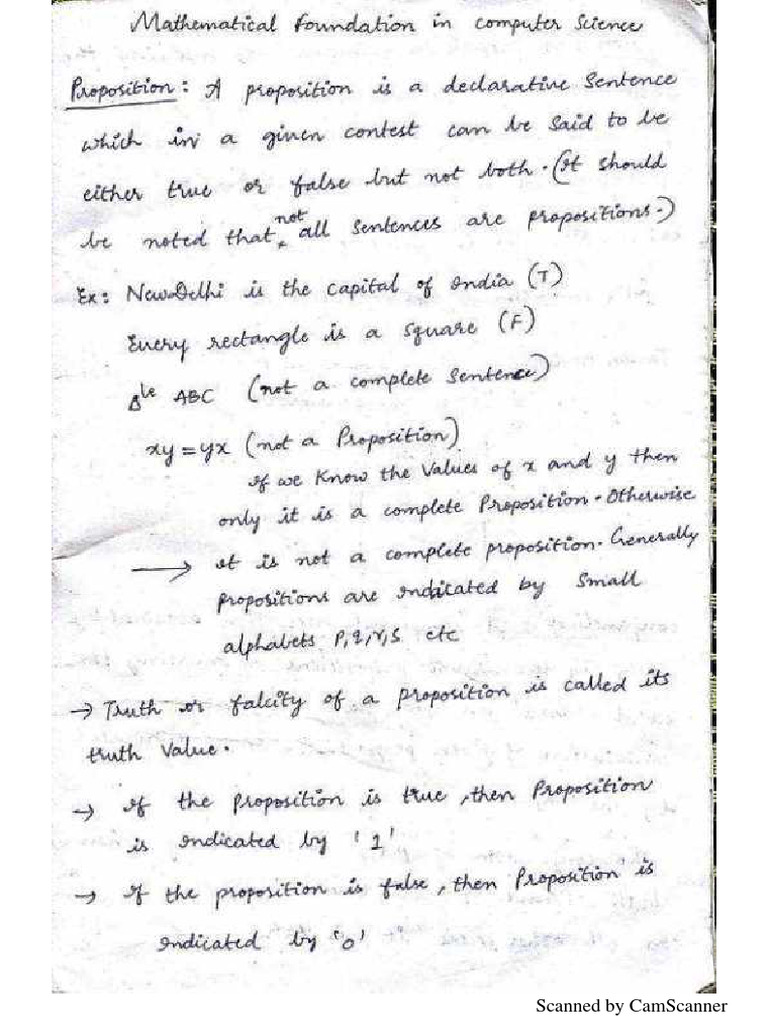 Mathematical Foundation in computer Science
Proposition: A proposition is a declarative Sentence
which in a given contest can be said to be
either true or false but not both. (It should
be noted that not all sentences are propositions.)
Ex: New Delhi is the capital of India (T)
Every rectangle is a square (F)
Δle ABC (not a complete Sentence)
xy = yx (not a Proposition)
If we Know the Values of x and y then
only it is a complete Proposition. Otherwise
→ It is not a complete proposition. Generally
propositions are Indicated by Small
alphabets P, q, r, s etc
→ Truth or falcity of a proposition is called its
truth Value.
→ If the Proposition is true, then Proposition
is Indicated by '1'
→ If the proposition is false, then Proposition is
Indicated by '0'
Scanned by CamScanner